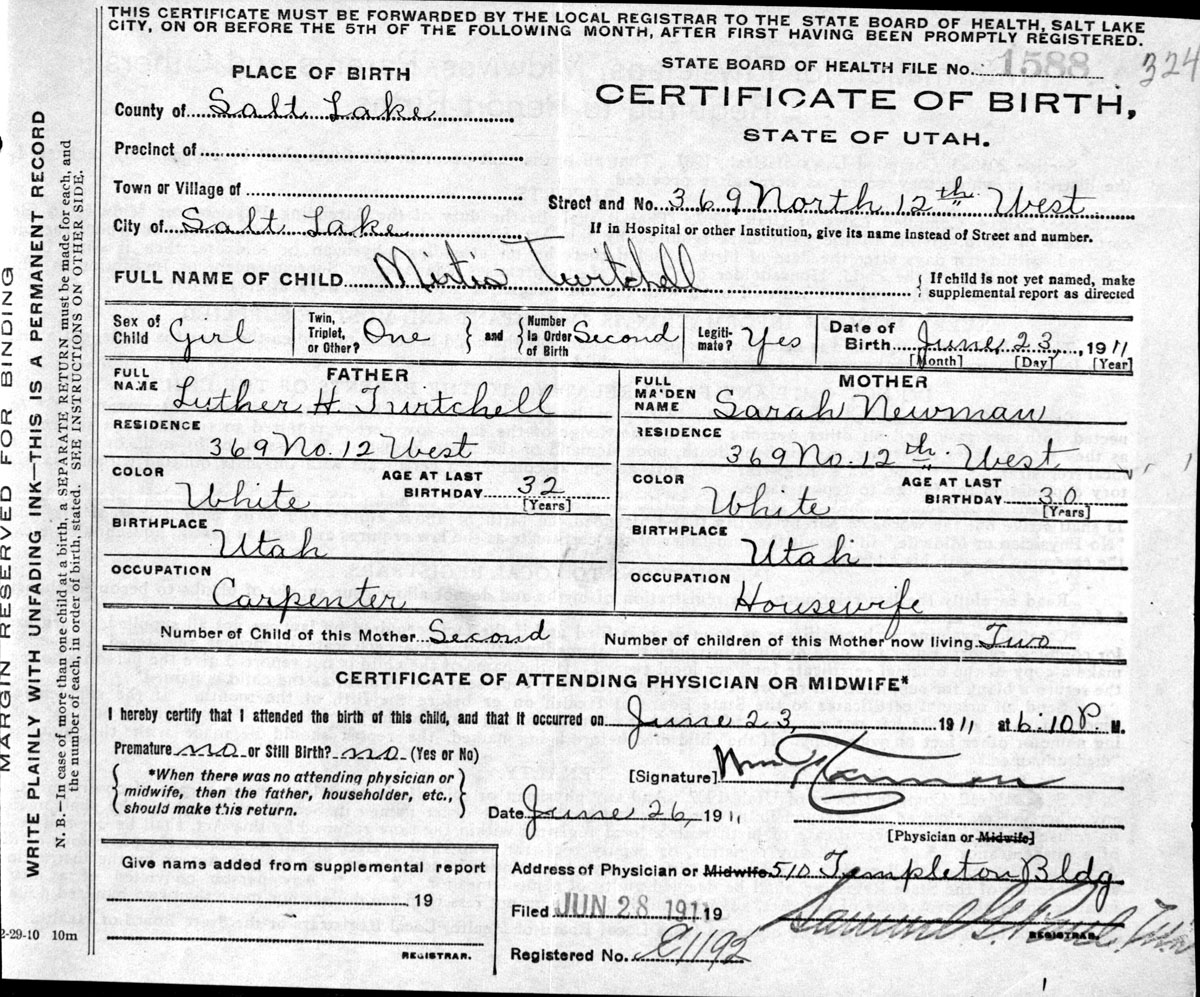 THIS CERTIFICATE MUST BE FORWARDED BY THE LOCAL REGISTRAR TO THE STATE BOARD OF HEALTH, SALT LAKE
CITY, ON OR BEFORE THE 5TH OF THE FOLLOWING MONTH, AFTER FIRST HAVING BEEN PROMPTLY REGISTERED.
STATE BOARD OF HEALTH FILE No. 1588 324
PLACE OF BIRTH
CERTIFICATE OF BIRTH,
STATE OF UTAH.
County of Salt Lake
Precinct of
Town or Village of
Street and No. 369 North 12th West
City of Salt Lake
If in Hospital or other Institution, give its name instead of Street and number.
FULL NAME OF CHILD Twitchell
If child is not yet named, make
supplemental report as directed
Sex of Child Girl
Twin, Triplet, or Other? One
and Number in Order of Birth Second
Legitimate? Yes
Date of Birth June 23, 1911
[Month] [Day] [Year]
FATHER
FULL NAME Luther H. Turtchell
RESIDENCE
369 No. 12 West
COLOR White
AGE AT LAST BIRTHDAY 32 [Years]
BIRTHPLACE
Utah
OCCUPATION
Carpenter
MOTHER
FULL MA'DEN NAME Sarah Newman
RESIDENCE
369 No. 12th West
COLOR White
AGE AT LAST BIRTHDAY 30 [Years]
BIRTHPLACE
Utah
OCCUPATION
Housewife
Number of Child of this Mother Second Number of children of this Mother now living Two
CERTIFICATE OF ATTENDING PHYSICIAN OR MIDWIFE*
I hereby certify that I attended the birth of this child, and that it occurred on June 23, 1911 at 6.10 P M.
Premature no or Still Birth? no (Yes or No)
*When there was no attending physician or
midwife, then the father, householder, etc.,
should make this return.
[Signature] Wm
Date June 26, 1911
[Physician or Midwife]
Give name added from supplemental report
19
REGISTRAR.
Address of Physician or Midwife 510 Templeton Bldg
Filed JUN 28 1911 19
Samuel G.
REGISTRAR.
Registered No. E1192
MARGIN RESERVED FOR BINDING
WRITE PLAINLY WITH UNFADING INK—THIS IS A PERMANENT RECORD
N. B.—In case of more than one child at a birth, a SEPARATE RETURN must be made for each, and
the number of each, in order of birth, stated. SEE INSTRUCTIONS ON OTHER SIDE.
2-29-10 10m